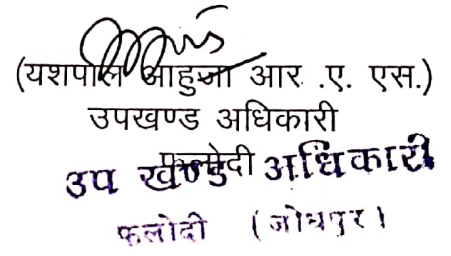 (यशपाल आहुजा आर .ए. एस.)
उपखण्ड अधिकारी
फलोदी
उप खण्ड अधिकारी
फलोदी (जोधपुर)